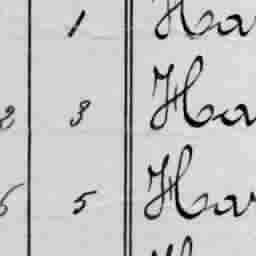 1 Ha
2 3 Ha
5 Har